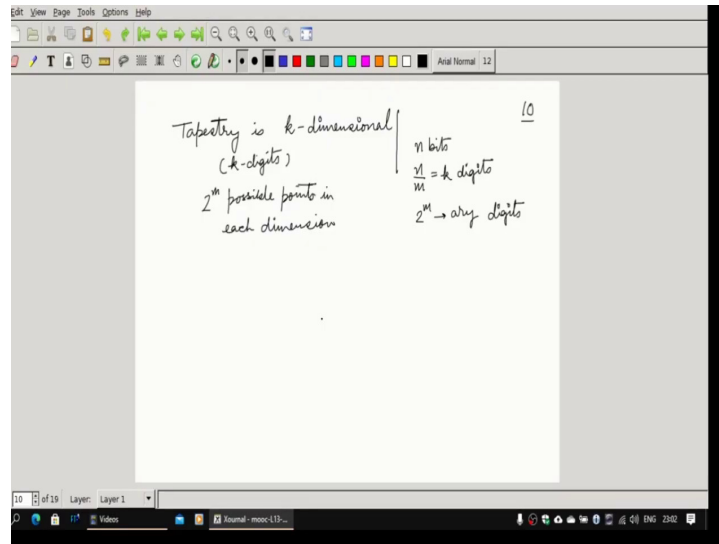 Edit View Page Tools Options Help
Arial Normal 12
10
Tapestry is k-dimensional
(k-digits)
2^m possible points in
each dimension
n bits
n/m = k digits
2^m → ary digits
10 of 19 Layer: Layer 1
Videos
Xournal - mooc-L13-...
ENG 23:02